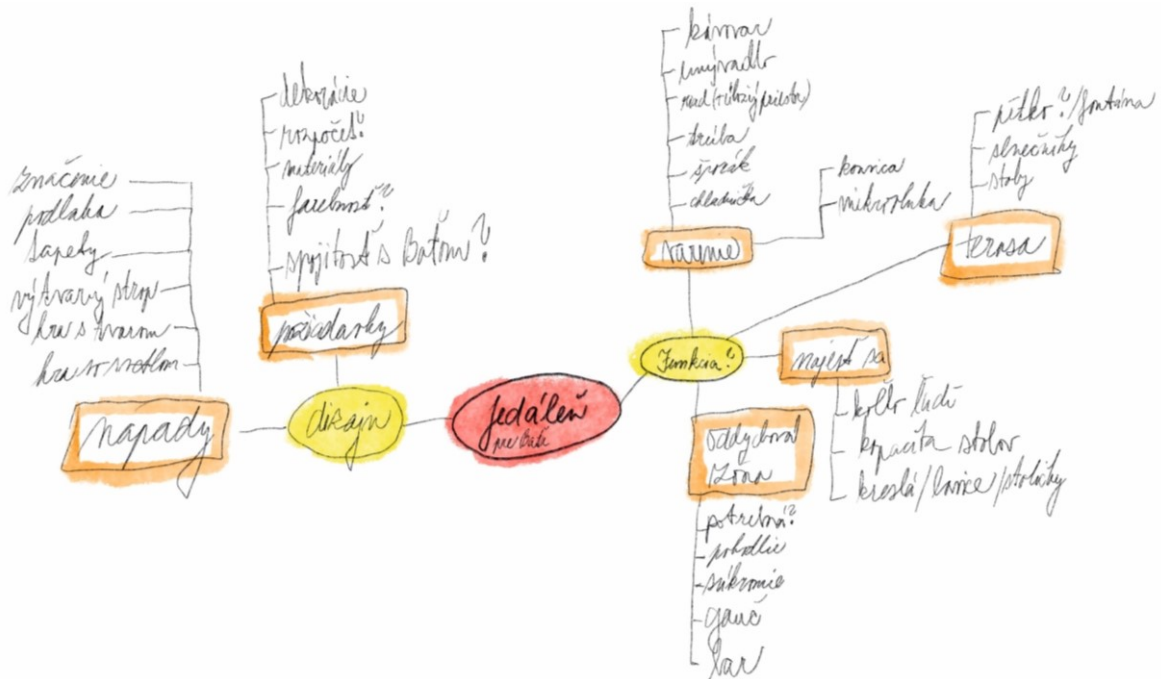 značenie
podlaha
tapety
výtvarný strop
hra s tvarom
hra so svetlom
napady
dekorácie
rozpočet?
materiály
farebnosť?
spojitosť s Baťom?
požiadavky
dizajn
jedáleň
Funkcia?
kávovar
umývadlo
riad (úložný priestor)
trúba
šporák
chladnička
varenie
kanvica
mikrovlnka
pítko?/fontána
slnečníky
stoly
terasa
najesť sa
koľko ľudí
kapacita stolov
kreslá/lavice/stoličky
oddychová
zóna
potrebná?
pohodlie
súkromie
gauč
bar